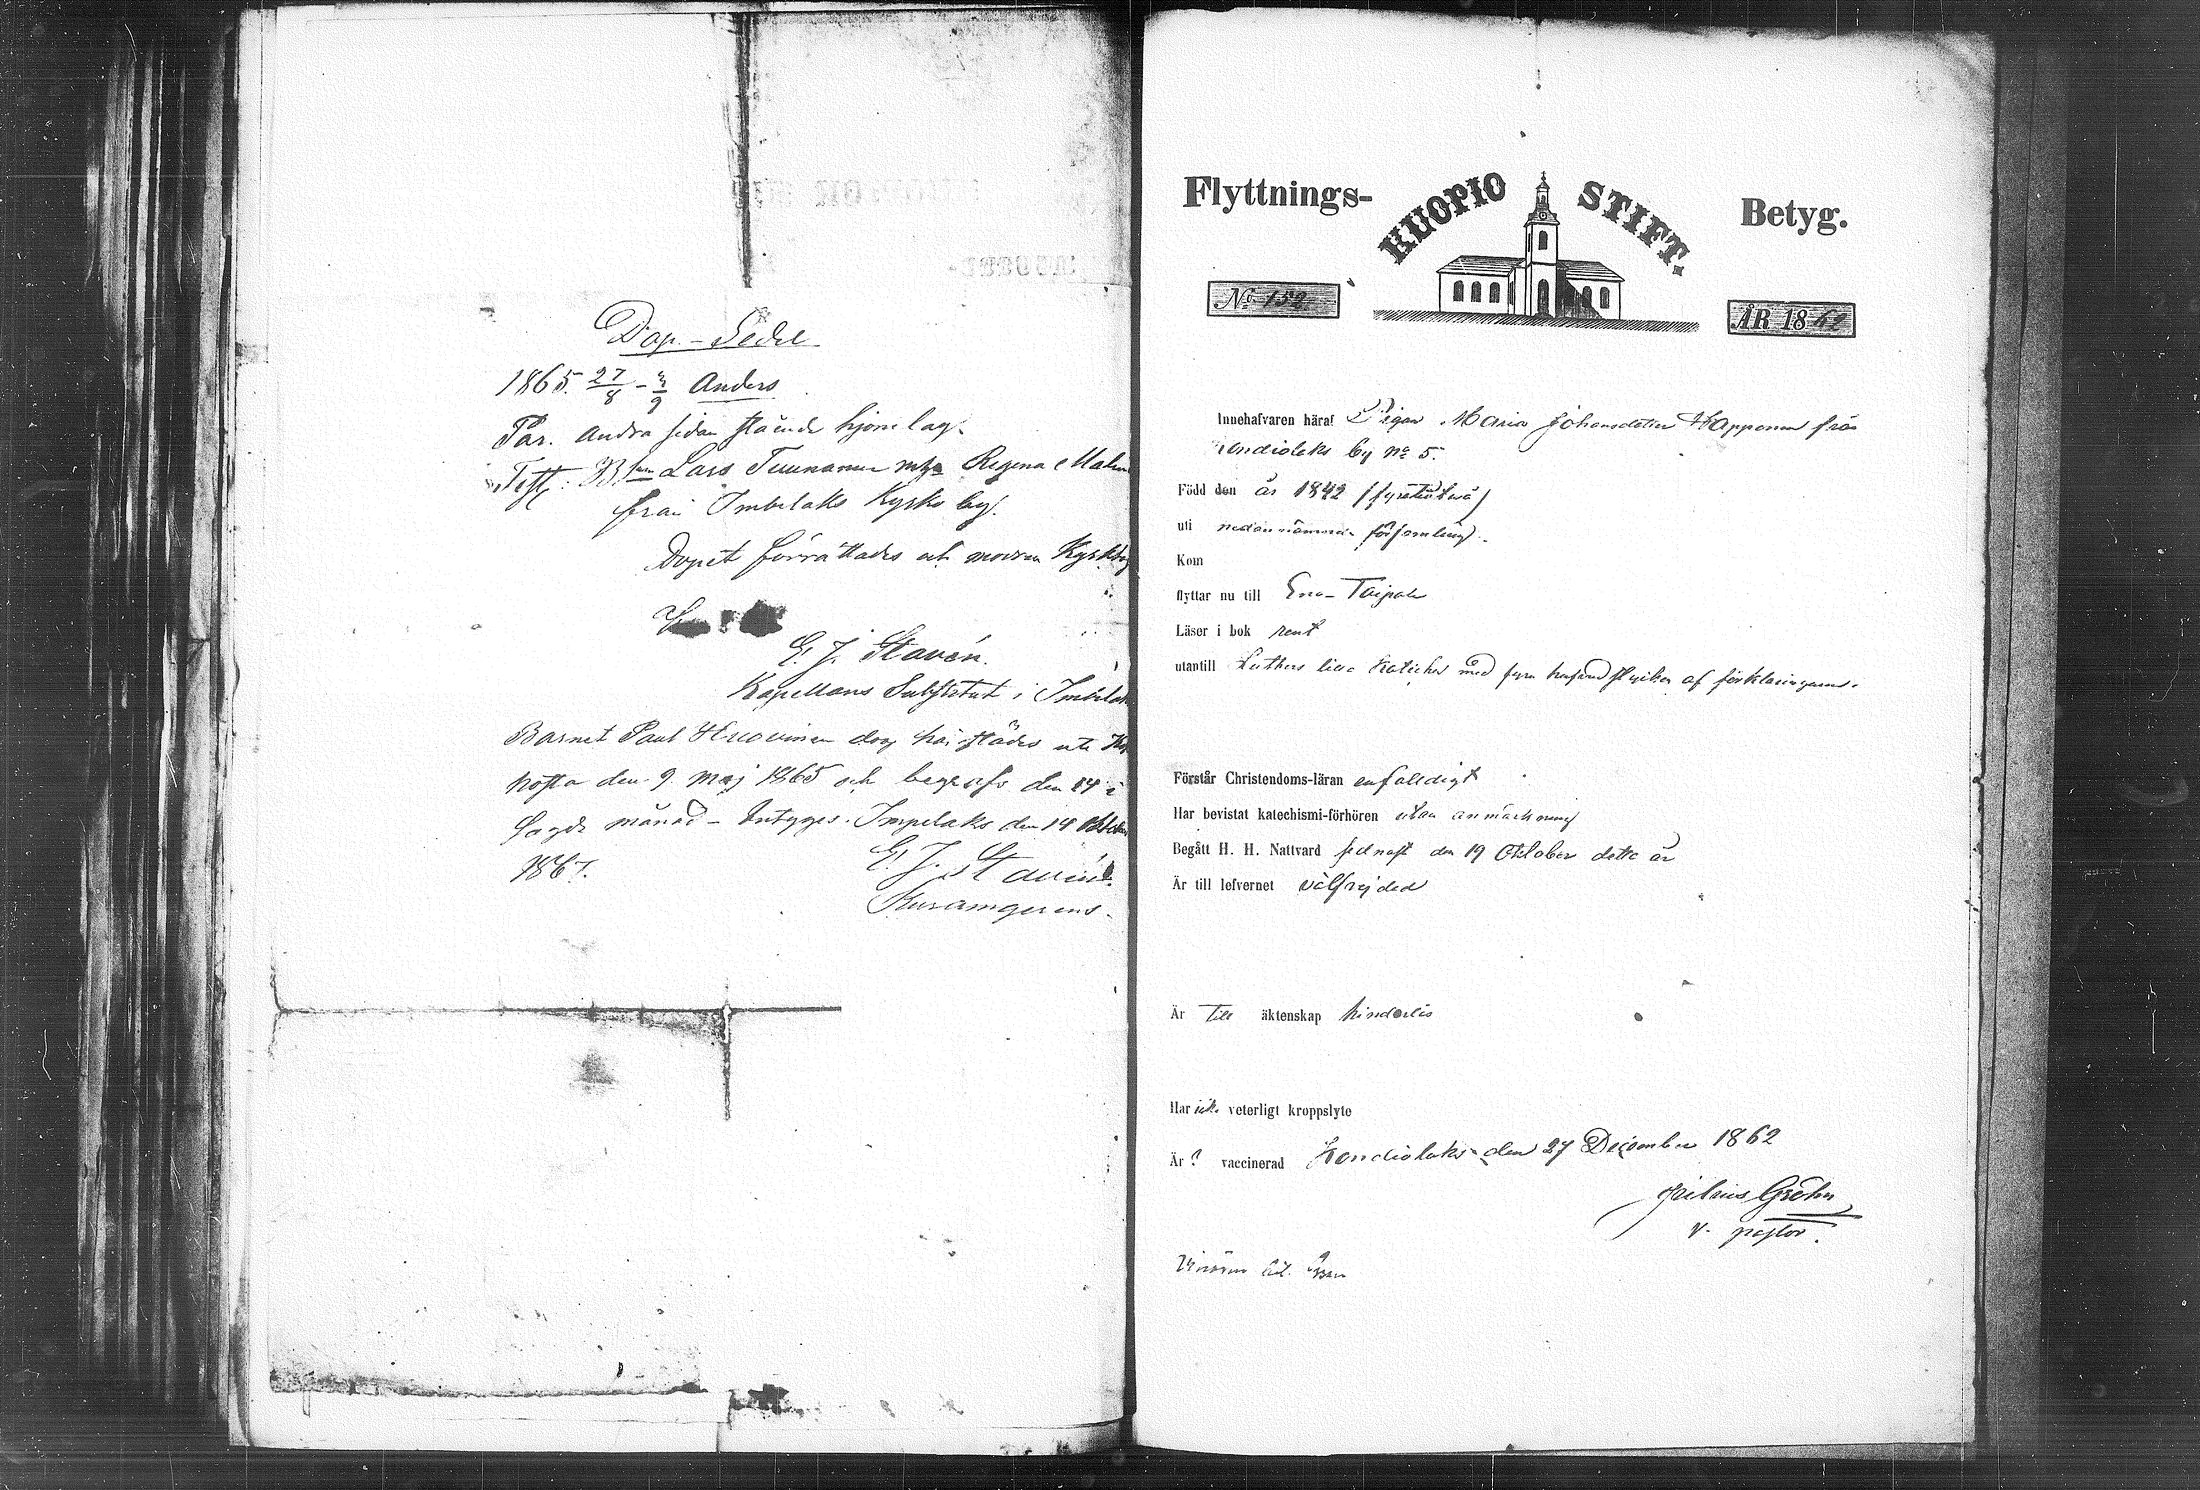 Dop-Sedel
1865. 27/8 - 3/9 Anders
Par. andra sidan stående hjonelag.
Test: Lars Tuunanen Regina
från Imbilaks Kyrko by.
Dopet förrättades
E. J. Stavén.
Kapellans Substitut i
Barnet Paul Huovinen dog härstädes
den 9. Maj 1865 och begrofs den 14 i
sagde månad - Intygas. Impilaks den 14
1867.
E. J. Stavén.
Flyttnings- KUOPIO STIFT. Betyg.
No 152 ÅR 1862
Innehafvaren häraf Pigan Maria Johansdotter Happonen från
Kondiolaks by No 5.
Född den år 1842 (fyratiotvå)
uti nedannämnda församling.
Kom
flyttar nu till Eno-Taipale
Läser i bok rent
utantill Luthers lilla Kateches med fyra hufvudstycken af förklaringarne.
Förstår Christendoms-läran enfaldigt
Har bevistat katechismi-förhören utan anmärkning
Begått H. H. Nattvard sednast den 19 Oktober detta år
Är till lefvernet välfrejdad
Är till äktenskap hinderlös
Har icke veterligt kroppslyte
Är ? vaccinerad Kondiolaks den 27 December 1862
Julius Gröhn
v. pastor.